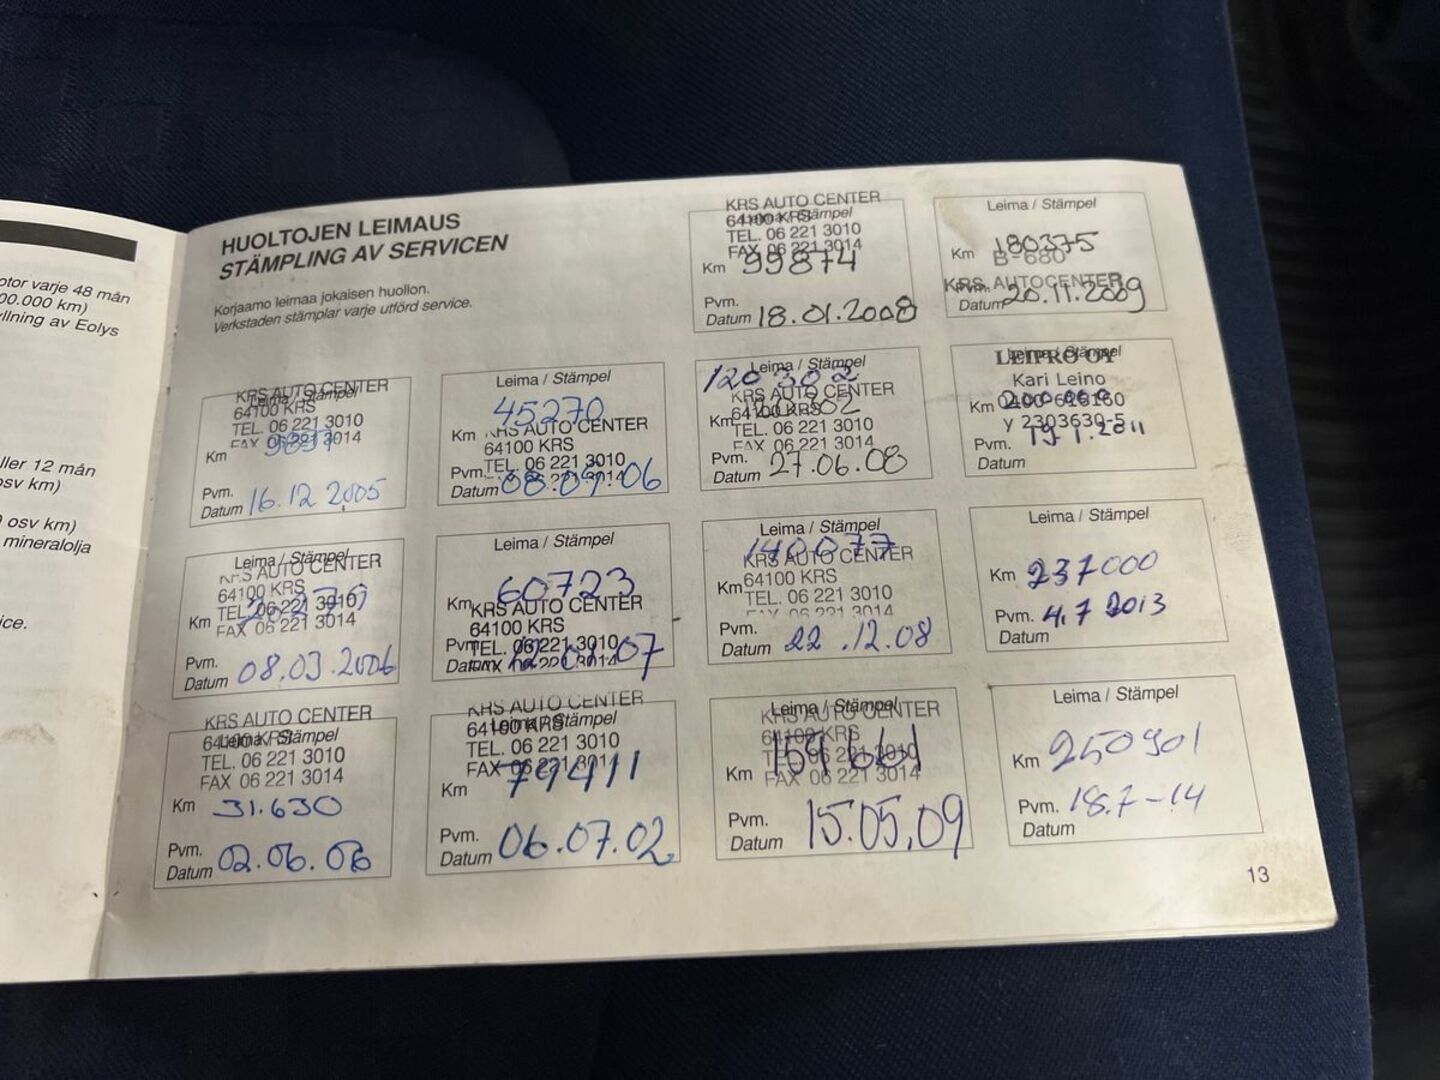 otor varje 48 mån
00.000 km)
llning av Eolys
ller 12 mån
osv km)
osv km)
mineralolja
ice.
HUOLTOJEN LEIMAUS
STÄMPLING AV SERVICEN
Korjaamo leimaa jokaisen huollon.
Verkstaden stämplar varje utförd service.
KRS AUTO CENTER
Leima / Stämpel
64100 KRS
TEL. 06 221 3010
FAX 06 221 3014
Km
Pvm.
Datum 16.12 2005
Leima / Stämpel
KRS AUTO CENTER
64100 KRS
TEL. 06 221 3010
Km
FAX 06 221 3014
Pvm.
Datum 08.03.2006
KRS AUTO CENTER
64100 KRS
Leima / Stämpel
TEL. 06 221 3010
FAX 06 221 3014
Km 31.630
Pvm.
Datum 02.06.06
Leima / Stämpel
Km 45270
KRS AUTO CENTER
64100 KRS
Pvm. TEL. 06 221 3010
Datum 08.09.06
Leima / Stämpel
Km 60723
KRS AUTO CENTER
64100 KRS
Pvm. TEL. 06 221 3010
Datum FAX 06 221 3014
KRS AUTO CENTER
64100 KRS
Leima / Stämpel
TEL. 06 221 3010
FAX 06 221 3014
Km 79411
Pvm.
Datum 06.07.02
KRS AUTO CENTER
64100 KRS
Leima / Stämpel
TEL. 06 221 3010
FAX 06 221 3014
Km 99874
Pvm.
Datum 18.01.2008
Leima / Stämpel
120 302
KRS AUTO CENTER
Km 64100 KRS
TEL. 06 221 3010
FAX 06 221 3014
Pvm.
Datum 27.06.08
Leima / Stämpel
140077
KRS AUTO CENTER
Km 64100 KRS
TEL. 06 221 3010
FAX 06 221 3014
Pvm.
Datum 22.12.08
Leima / Stämpel
KRS AUTO CENTER
64100 KRS
Km 159 661
FAX 06 221 3014
Pvm.
Datum 15.05.09
Leima / Stämpel
Km 180375
B-680
KRS AUTOCENTER
Pvm.
Datum 20.11.2009
LEIPRO OY
Leima / Stämpel
Kari Leino
Km
y 2303630-5
Pvm. 19.1.2011
Datum
Leima / Stämpel
Km 237000
Pvm. 4.7 2013
Datum
Leima / Stämpel
Km 250901
Pvm. 18.7-14
Datum
13